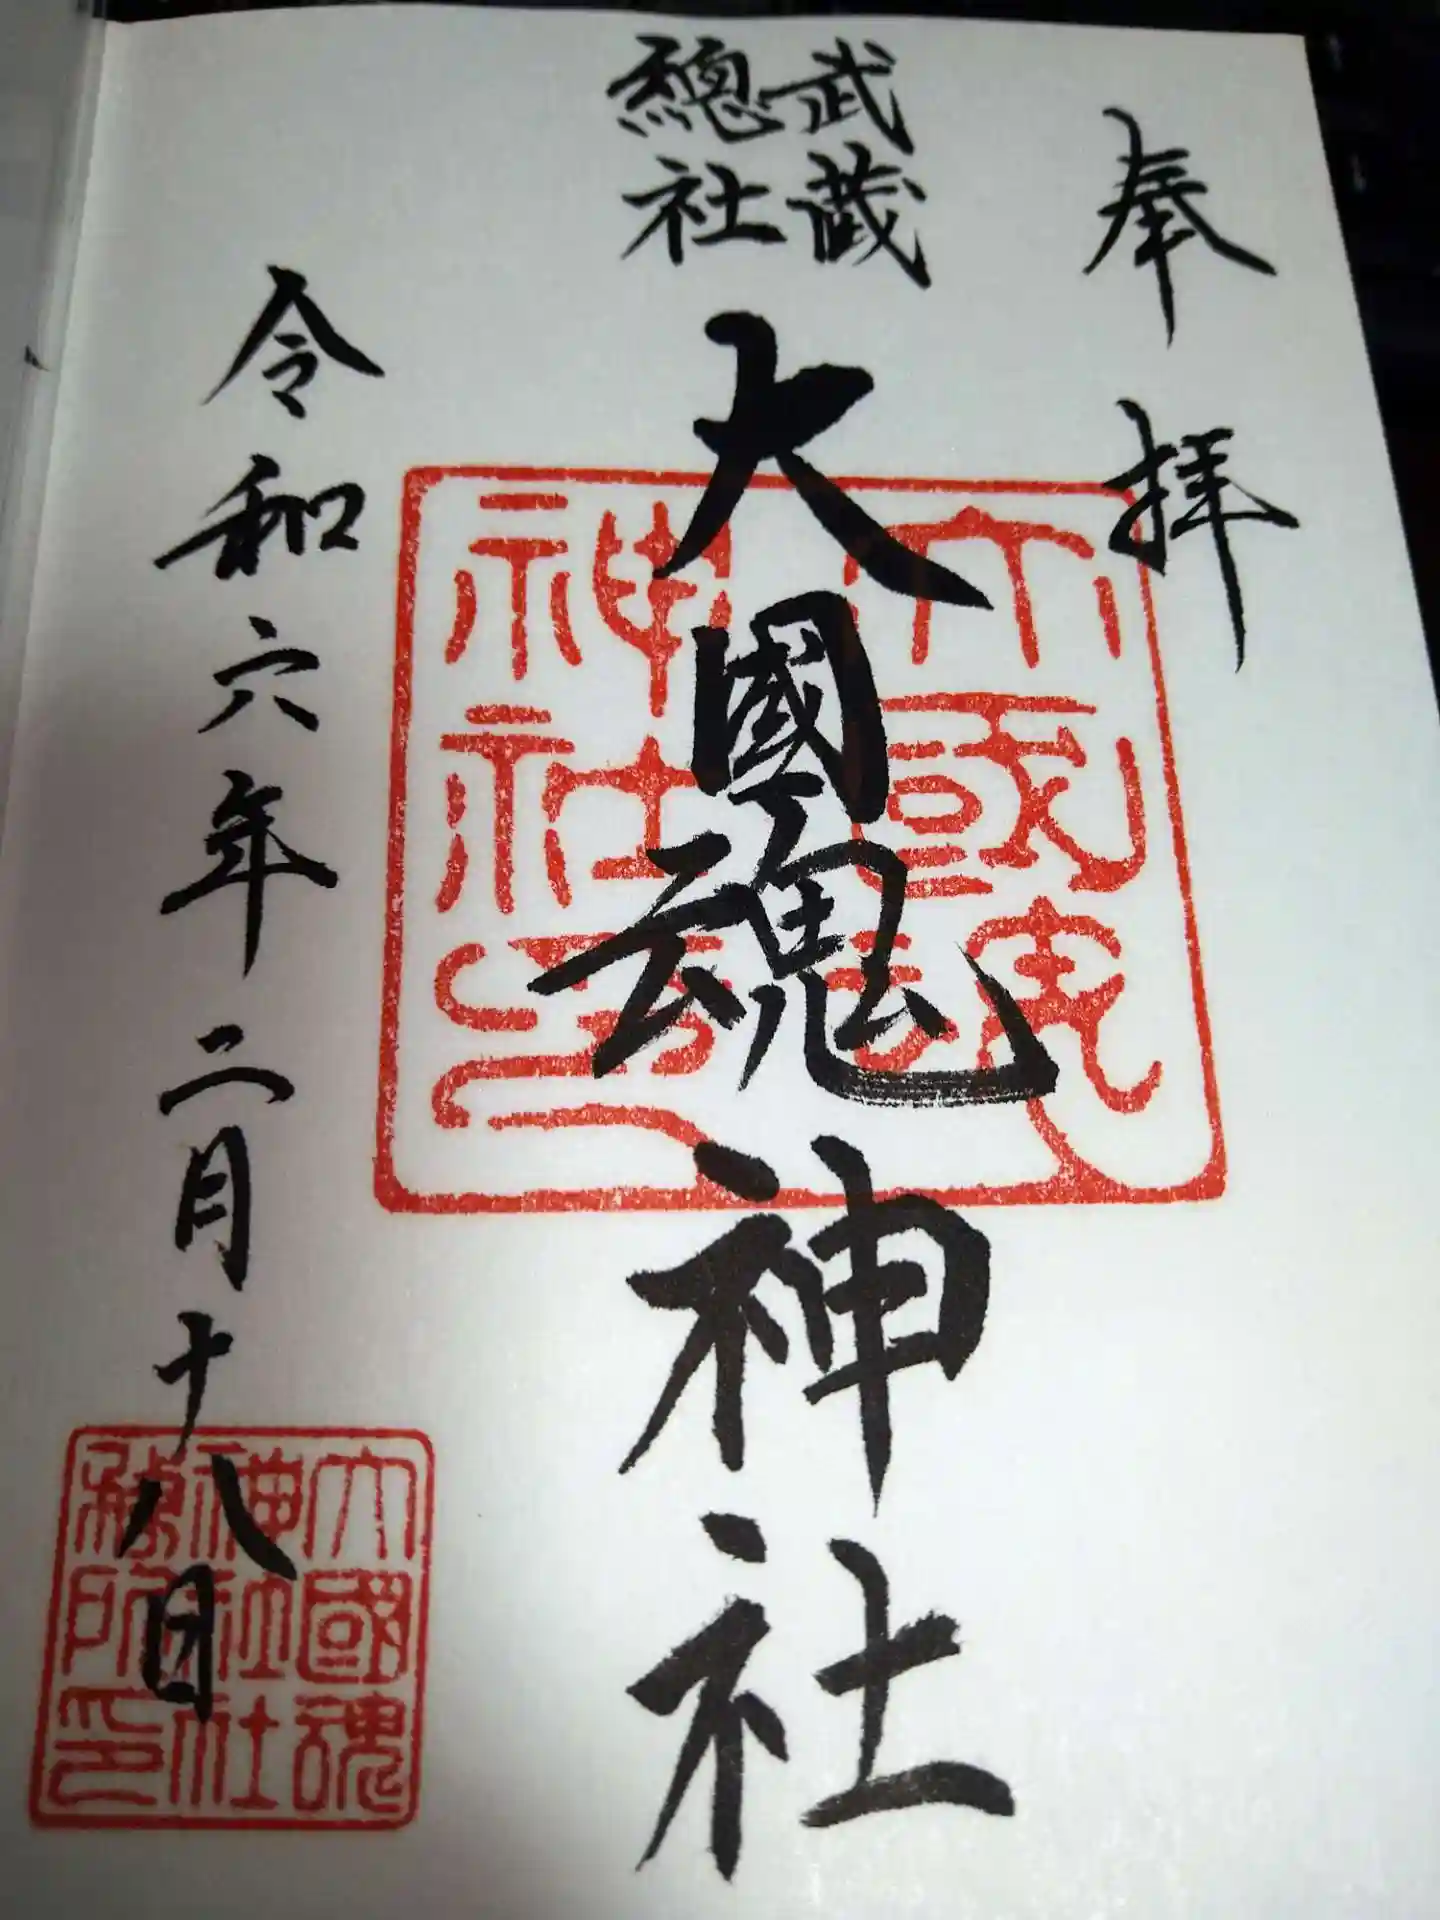 奉拝
武蔵
總社
大國魂神社
令和六年二月十八日
大國魂
神社印
大國魂
神社社
務所印